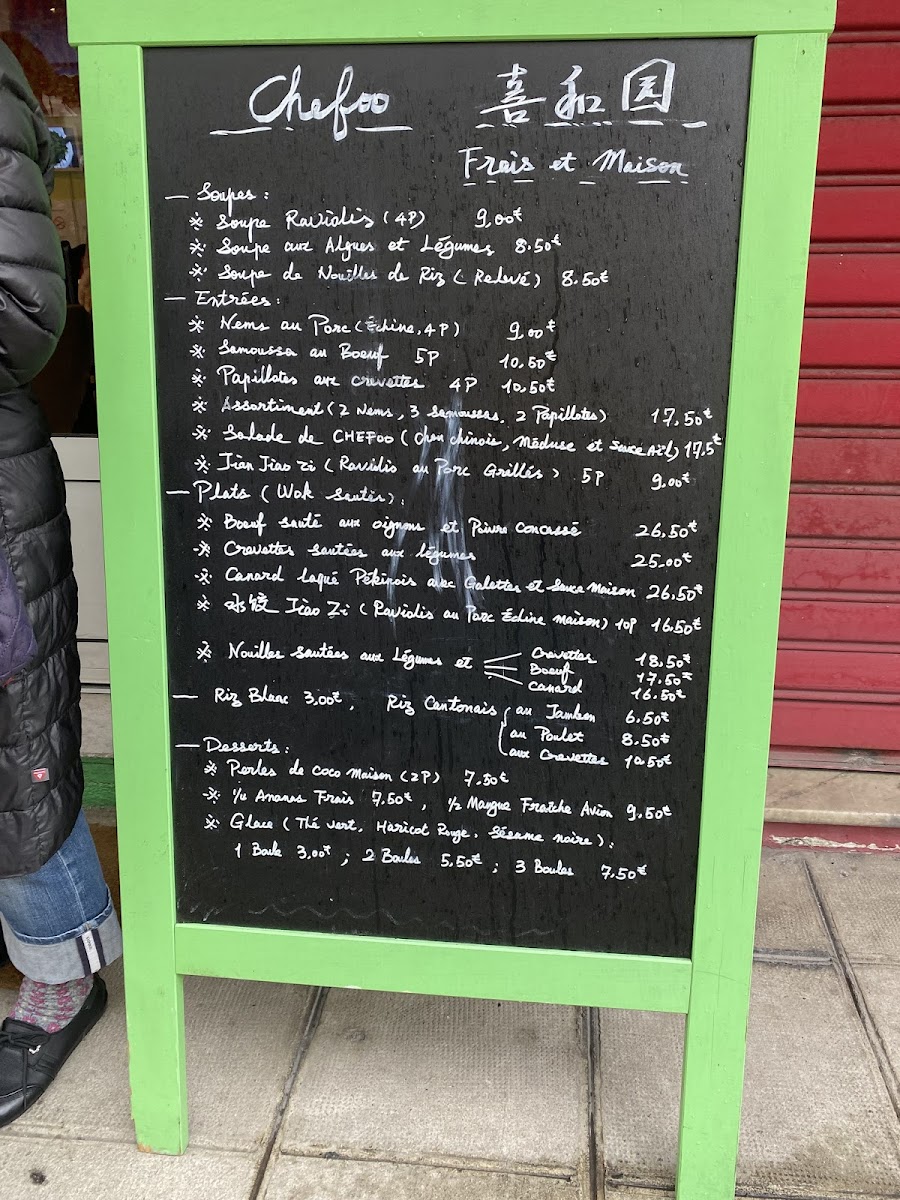 Chefoo 喜和园
Frais et Maison
— Soupes :
※ Soupe Raviolis (4P) 9,00€
※ Soupe aux Algues et Légumes 8.50€
※ Soupe de Nouilles de Riz (Relevé) 8.50€
— Entrées :
※ Nems au Porc (Échine, 4P) 9,00€
※ Samoussa au Boeuf 5P 10,50€
※ Papillotes aux crevettes 4P 10,50€
※ Assortiment (2 Nems, 3 samoussas, 2 Papillotes) 17,50€
※ Salade de CHEFOO (chou chinois, Méduse et Sauce Ail) 17,5€
※ Jian Jiao Zi (Raviolis au Porc Grillés) 5P 9,00€
— Plats (Wok sautés) :
※ Boeuf sauté aux oignons et Poivre concassé 26,50€
※ Crevettes sautées aux légumes 25.00€
※ Canard laqué Pékinois avec Galettes et Sauce Maison 26,50€
※ 水饺 Jiao Zi (Raviolis au Porc Échine maison) 10P 16.50€
※ Nouilles sautées aux Légumes et Crevettes 18.50€
Boeuf 17.50€
Canard 16.50€
— Riz Blanc 3,00€, Riz Cantonais au Jambon 6.50€
au Poulet 8.50€
aux Crevettes 10.50€
— Desserts :
※ Perles de coco Maison (2P) 7,50€
※ 1/4 Ananas Frais 7,50€, 1/2 Mangue Fraîche Avion 9,50€
※ Glace (Thé vert, Haricot Rouge, Sésame noire) :
1 Boule 3,00€ ; 2 Boules 5,50€ ; 3 Boules 7,50€